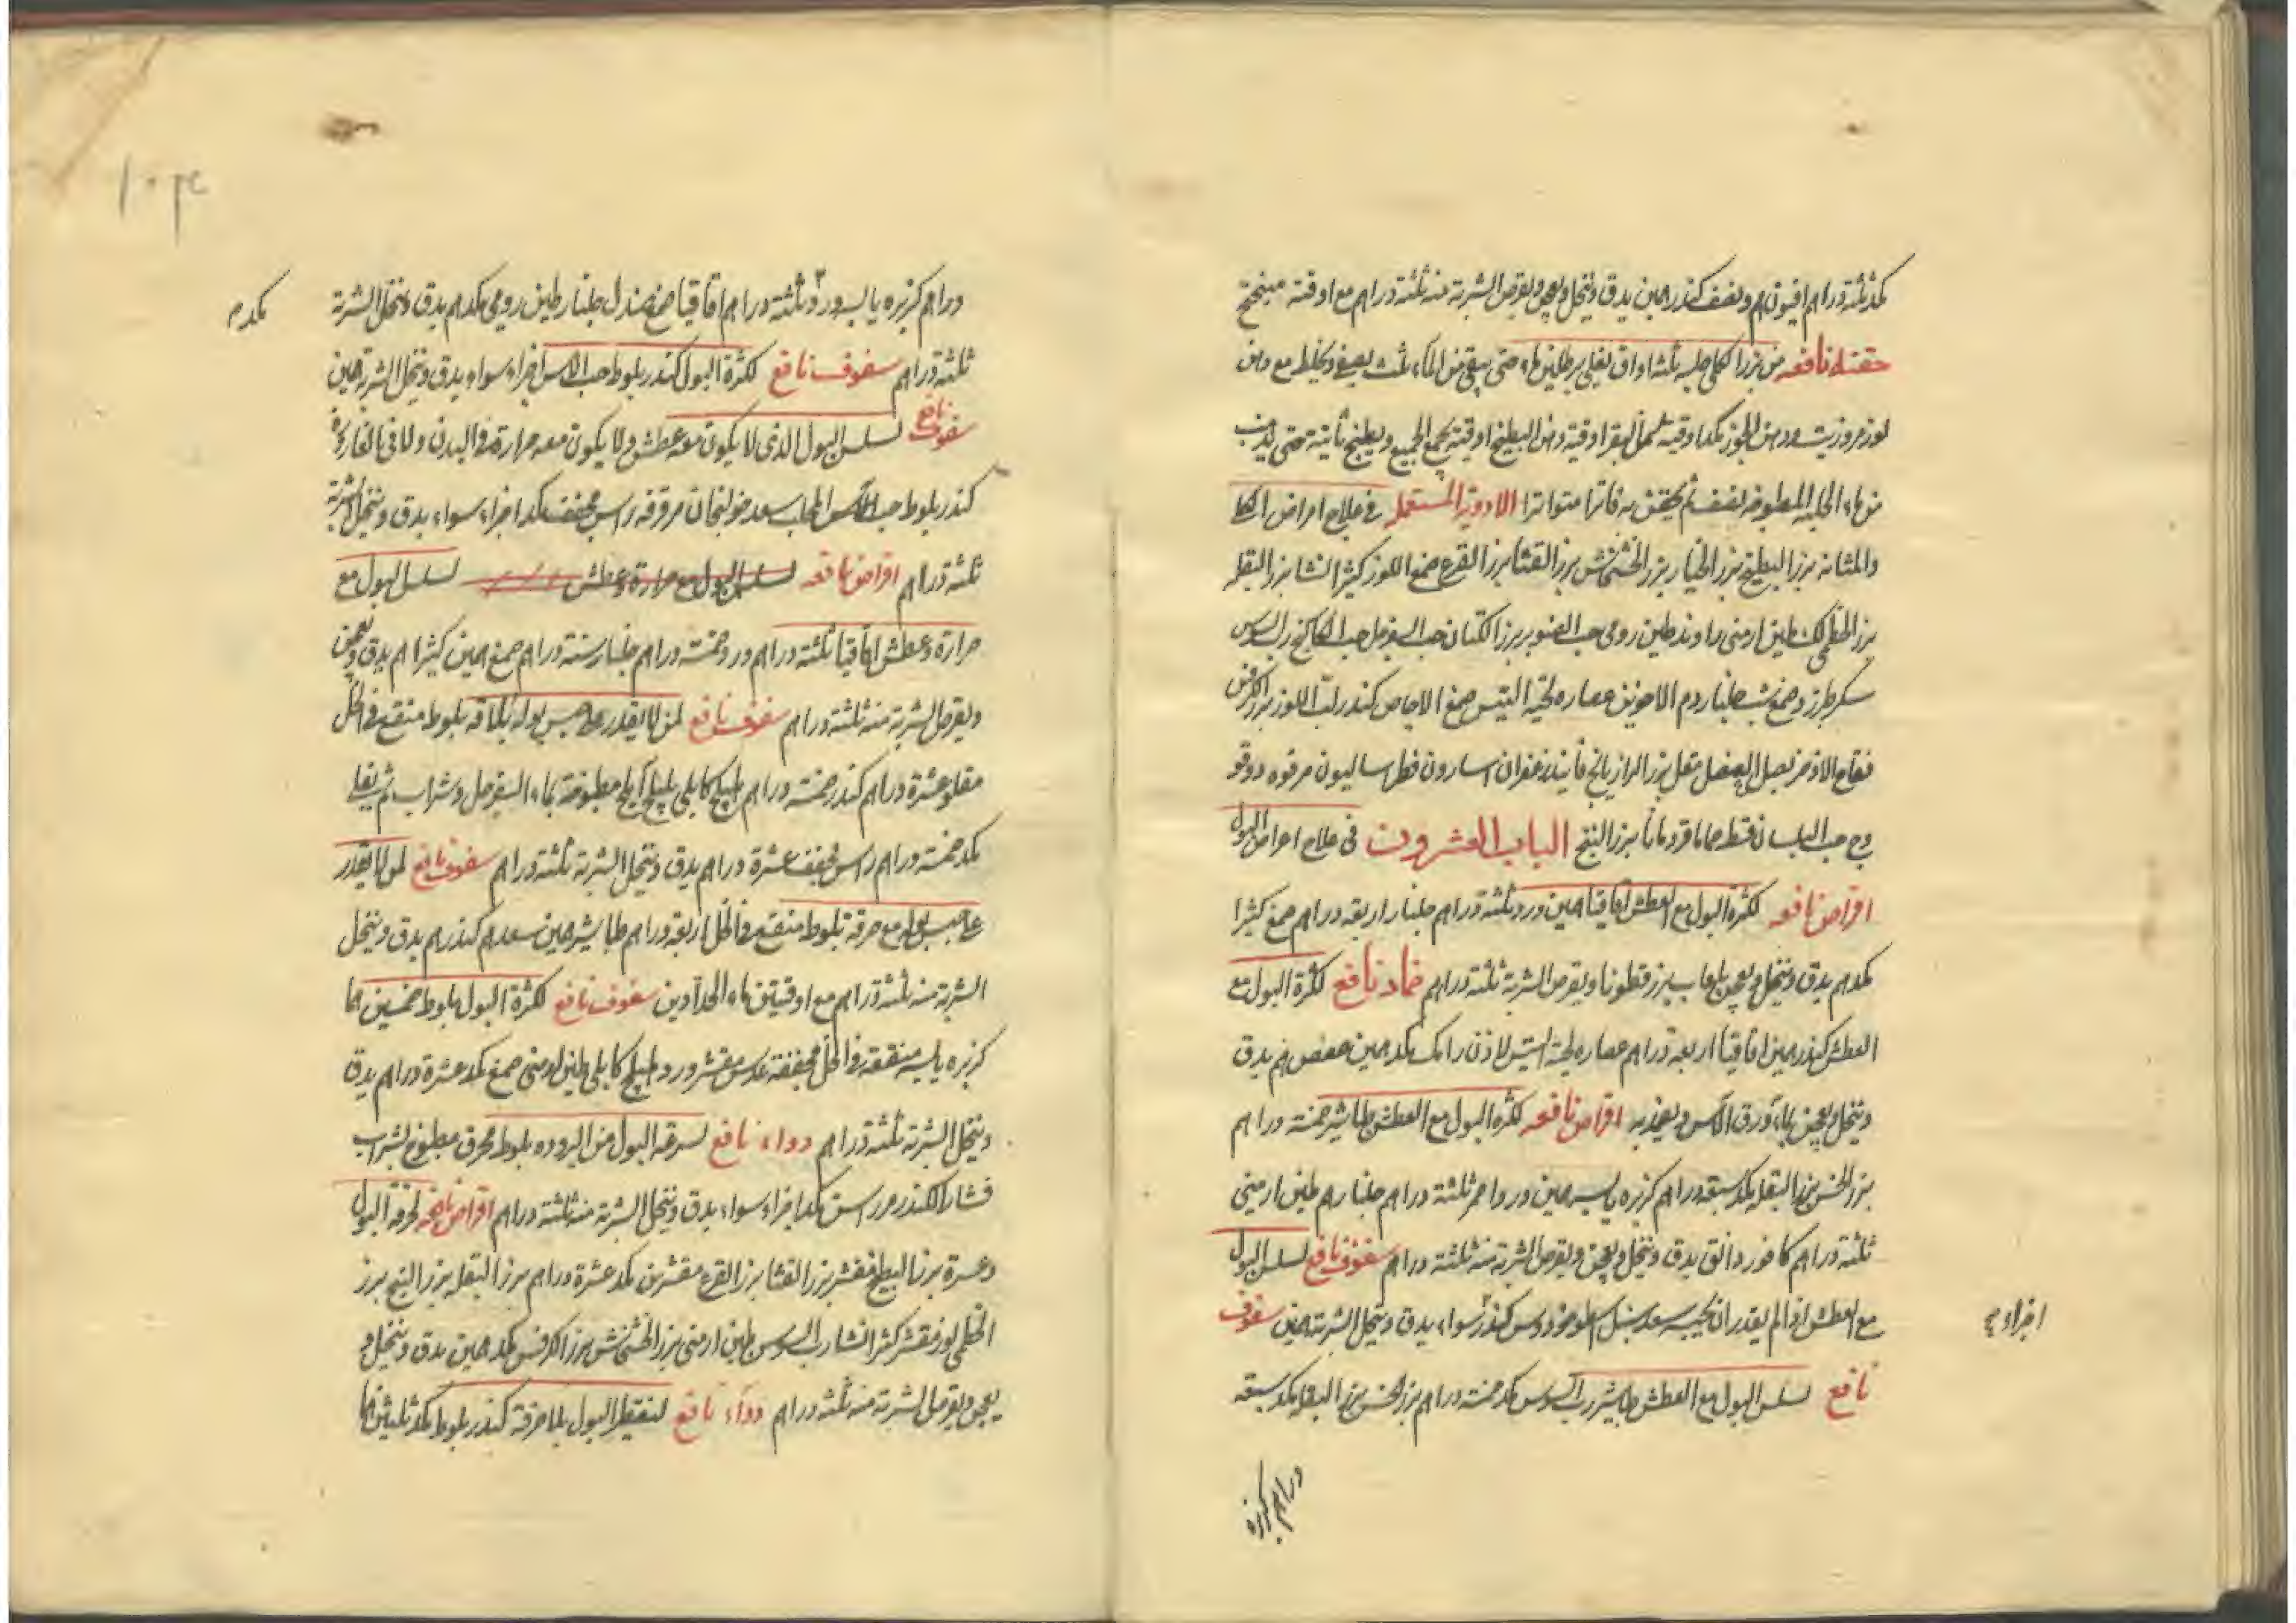 كمد ثلثة دراهم افيون درهم ونصف كندر درهمين يدق وينخل ويعجن ويقرص الشربة منه ثلثة دراهم مع اوقية ميبختج
حقنه نافعه من بزر الكلى حلبه ثلثه اواق يغلى برطلين ماء حتى يبقى من الماء ثلث يصفى ويخلط مع دهن
لوز مر وزيت ودهن الجوز مكد اوقيه سمن البقر اوقية دهن البطيخ اوقية يجمع الجميع ويطبخ ثانية حتى يذهب
من ماء الحلبه المطبوخه نصف ثم يحقن به فاترا متواترا الادوية المستعمله في علاج امراض الكلا
والمثانه بزر البطيخ بزر الخيار بزر الخشخاش بزر القثا بزر القرع صمغ اللوز كثيرا نشا بزر البقله
بزر الخطمى لك طين ارمنى راوند طين رومى حب الصنوبر بزر الكتان حب السفرجل حب الكاكنج رب السوس
سكر طبرزد صمغ شب جلنار دم الاخوين عصاره لحية التيس صمغ الاجاص كندر لب اللوز بزر الكرفس
فقاح الاذخر بصل العنصل مقل بزر الرازيانج فانيد زعفران اسارون فطراساليون مر فوه دوقو
وج حب البلسان قسط حماما قردمانا بزر البنج الباب العشرون في علاج امراض البول
اقراص نافعه لكثرة البول مع العطش اقاقيا درهمين ورد ثلثة دراهم جلنار اربعه دراهم صمغ كثيرا
مكد درهم يدق وينخل ويعجن بلعاب بزر قطونا ويقرص الشربة ثلثة دراهم ضماد نافع لكثرة البول مع
العطش كندر درهمين اقاقيا اربعة دراهم عصاره لحية التيس لاذن رامك مكد درهمين عفص درهم يدق
وينخل ويعجن بماء ورق الآس ويضمد به اقراص نافعه لكثره البول مع العطش طباشير خمسة دراهم
بزر الخس بزر البقله مكد سبعه دراهم كزبره يابسه درهمين ورد احمر ثلثة دراهم جلنار درهم طين ارمنى
ثلثة دراهم كافور دانق يدق وينخل ويعجن ويقرص الشربة منه ثلثة دراهم سفوف نافع لسلس البول
مع العطش اذا لم يقدر ان يحبسه سعد سنبل كندر سواء يدق وينخل الشربة درهمين سفوف
اجزاء
نافع لسلس البول مع العطش طباشير رب السوس مكد خمسة دراهم بزر الخس بزر البقله مكد سبعه
دراهم كزبره
دراهم كزبره يابسه ورد ثلثة دراهم اقاقيا صمغ صندل جلنار طين رومى مكد درهم يدق وينخل الشربة
مكد
ثلثة دراهم سفوف نافع لكثرة البول كندر بلوط حب الآس اجزاء سواء يدق وينخل الشربة درهمين
سفوف نافع لسلس البول الذى لا يكون معه عطش ولا يكون معه حرارة في البدن ولا في القاروره
كندر بلوط حب الآس المحلب سعد خولنجان مر قرفه راسن مجفف مكد اجزاء سواء يدق وينخل الشربة
ثلثة دراهم اقراص نافعه لسلس البول مع حرارة وعطش لسلس البول مع
حرارة وعطش اقاقيا ثلثة دراهم ورد خمسة دراهم جلنار ستة دراهم صمغ درهمين كثيرا درهم يدق ويعجن
ويقرص الشربة منه ثلثة دراهم سفوف نافع لمن لا يقدر على حبس بوله بلا حرقه بلوط منقع في الخل
مقلو عشرة دراهم كندر خمسة دراهم هليلج كابلى بليلج آملج مطبوخة بماء السفرجل وشراب ثم يقلى
مكد خمسة دراهم راسن مجفف عشرة دراهم يدق وينخل الشربة ثلثة دراهم سفوف نافع لمن لا يقدر
على حبس بوله مع حرقة بلوط منقع في الخل اربعه دراهم طباشير درهمين سعد درهم كندر درهم يدق وينخل
الشربة منه ثلثة دراهم مع اوقيتين ماء الحدادين سفوف نافع لكثرة البول بلوط خمسين درهما
كزبره يابسه منقعة في الخل مجففة عدس مقشر ورد هليلج كابلى طين ارمنى صمغ مكد عشرة دراهم يدق
وينخل الشربة ثلثة دراهم دواء نافع لسرعة البول من البروده بلوط محرق مطبوخ بشراب
قشار الكندر مر راسن مكد اجزاء سواء يدق وينخل الشربة منه ثلثة دراهم اقراص نافعه لحرقة البول
وعسرة بزر البطيخ مقشر بزر القثا بزر القرع مقشرين مكد عشرة دراهم بزر البقله بزر البنج بزر
الخطمى لوز مقشر كثيرا نشا رب السوس طين ارمنى بزر الخشخاش بزر الكرفس مكد درهمين يدق وينخل و
يعجن ويقرص الشربة منه ثلثة دراهم دواء نافع لتقطير البول بلا حرقة كندر بلوط مكد ثلثين درهما